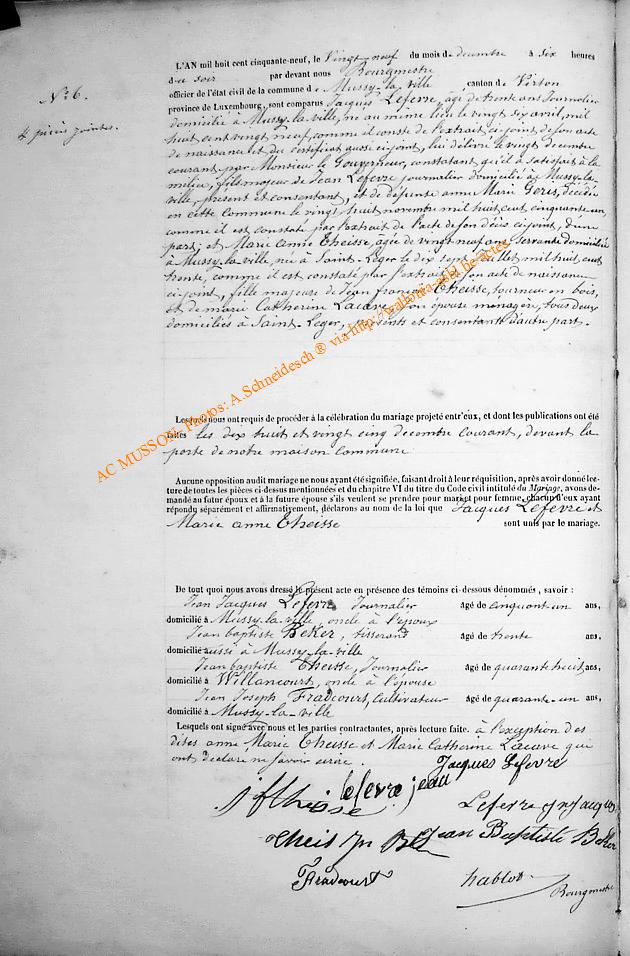 N.º 6.
4 pièces jointes.
L'AN mil huit cent cinquante-neuf, le Vingt neuf du mois de decembre à Six heures
du soir par devant nous Bourgmestre
officier de l'état civil de la commune de Mussy-la-ville canton de Virton
province de Luxembourg, sont comparus Jacques Lefevre, âgé de trente ans Journalier
domicilié à Mussy-la-ville, né au même lieu le vingt six avril, mil
huit cent vingt neuf, comme il conste de l'extrait ci-joint de son acte
de naissance et du certificat aussi ci-joint, lui délivré le vingt decembre
courant par Monsieur le Gouverneur, constatant qu'il a satisfait à la
milice, fils majeur de Jean Lefevre journalier domicilié à Mussy-la-
ville, présent et consentant, et de défunte anne Marie Goris, décédée
en cette commune le vingt huit novembre mil huit cent cinquante un,
comme il est constaté par l'extrait de l'acte de son décès ci-joint, d'une
part; et Marie anne Theisse, âgée de vingt neuf ans, servante domiciliée
à Mussy-la-ville, née à Saint-Leger le dix sept Juillet mil huit cent
trente, comme il est constaté par l'extrait de son acte de naissance
ci-joint, fille majeure de Jean françois Theisse, tourneur en bois,
et de marie Catherine Lacave, son épouse ménagère, tous deux
domiciliés à Saint-Leger, présents et consentants d'autre part.
Lesquels nous ont requis de procéder à la célébration du mariage projeté entr'eux, et dont les publications ont été
faites les dix huit et vingt cinq decembre courant, devant la
porte de notre maison commune
Aucune opposition audit mariage ne nous ayant été signifiée, faisant droit à leur réquisition, après avoir donné lec-
ture de toutes les pièces ci-dessus mentionnées et du chapitre VI du titre du Code civil intitulé du Mariage, avons de-
mandé au futur époux et à la future épouse s'ils veulent se prendre pour mari et pour femme, chacun d'eux ayant
répondu séparément et affirmativement, déclarons au nom de la loi que Jacques Lefevre et
Marie anne Theisse sont unis par le mariage.
De tout quoi nous avons dressé le présent acte en présence des témoins ci-dessous dénommés, savoir :
Jean Jacques Lefevre Journalier âgé de cinquant-un ans,
domicilié à Mussy-la-ville, oncle à l'époux
Jean baptiste Beker, tisserand âgé de trente ans,
domicilié aussi à Mussy-la-ville
Jean baptiste Theisse, Journalier âgé de quarante huit ans,
domicilié à Willancourt, oncle à l'épouse
Jean Joseph Fradcourt, Cultivateur âgé de quarante-un ans,
domicilié à Mussy-la-ville
Lesquels ont signé avec nous et les parties contractantes, après lecture faite. à l'exception des
dites anne Marie Theisse et Marie Catherine Lacave qui
ont déclaré ne savoir ecrire.
Jacques Lefevre
lefevre jean
Lefevre jn jacques
Jean Baptiste Beker
Fradcourt
hablot
Bourgmestre
AC MUSSON, Photos: A. Schneidesch ® via http://wallonia-asbl.be/actes